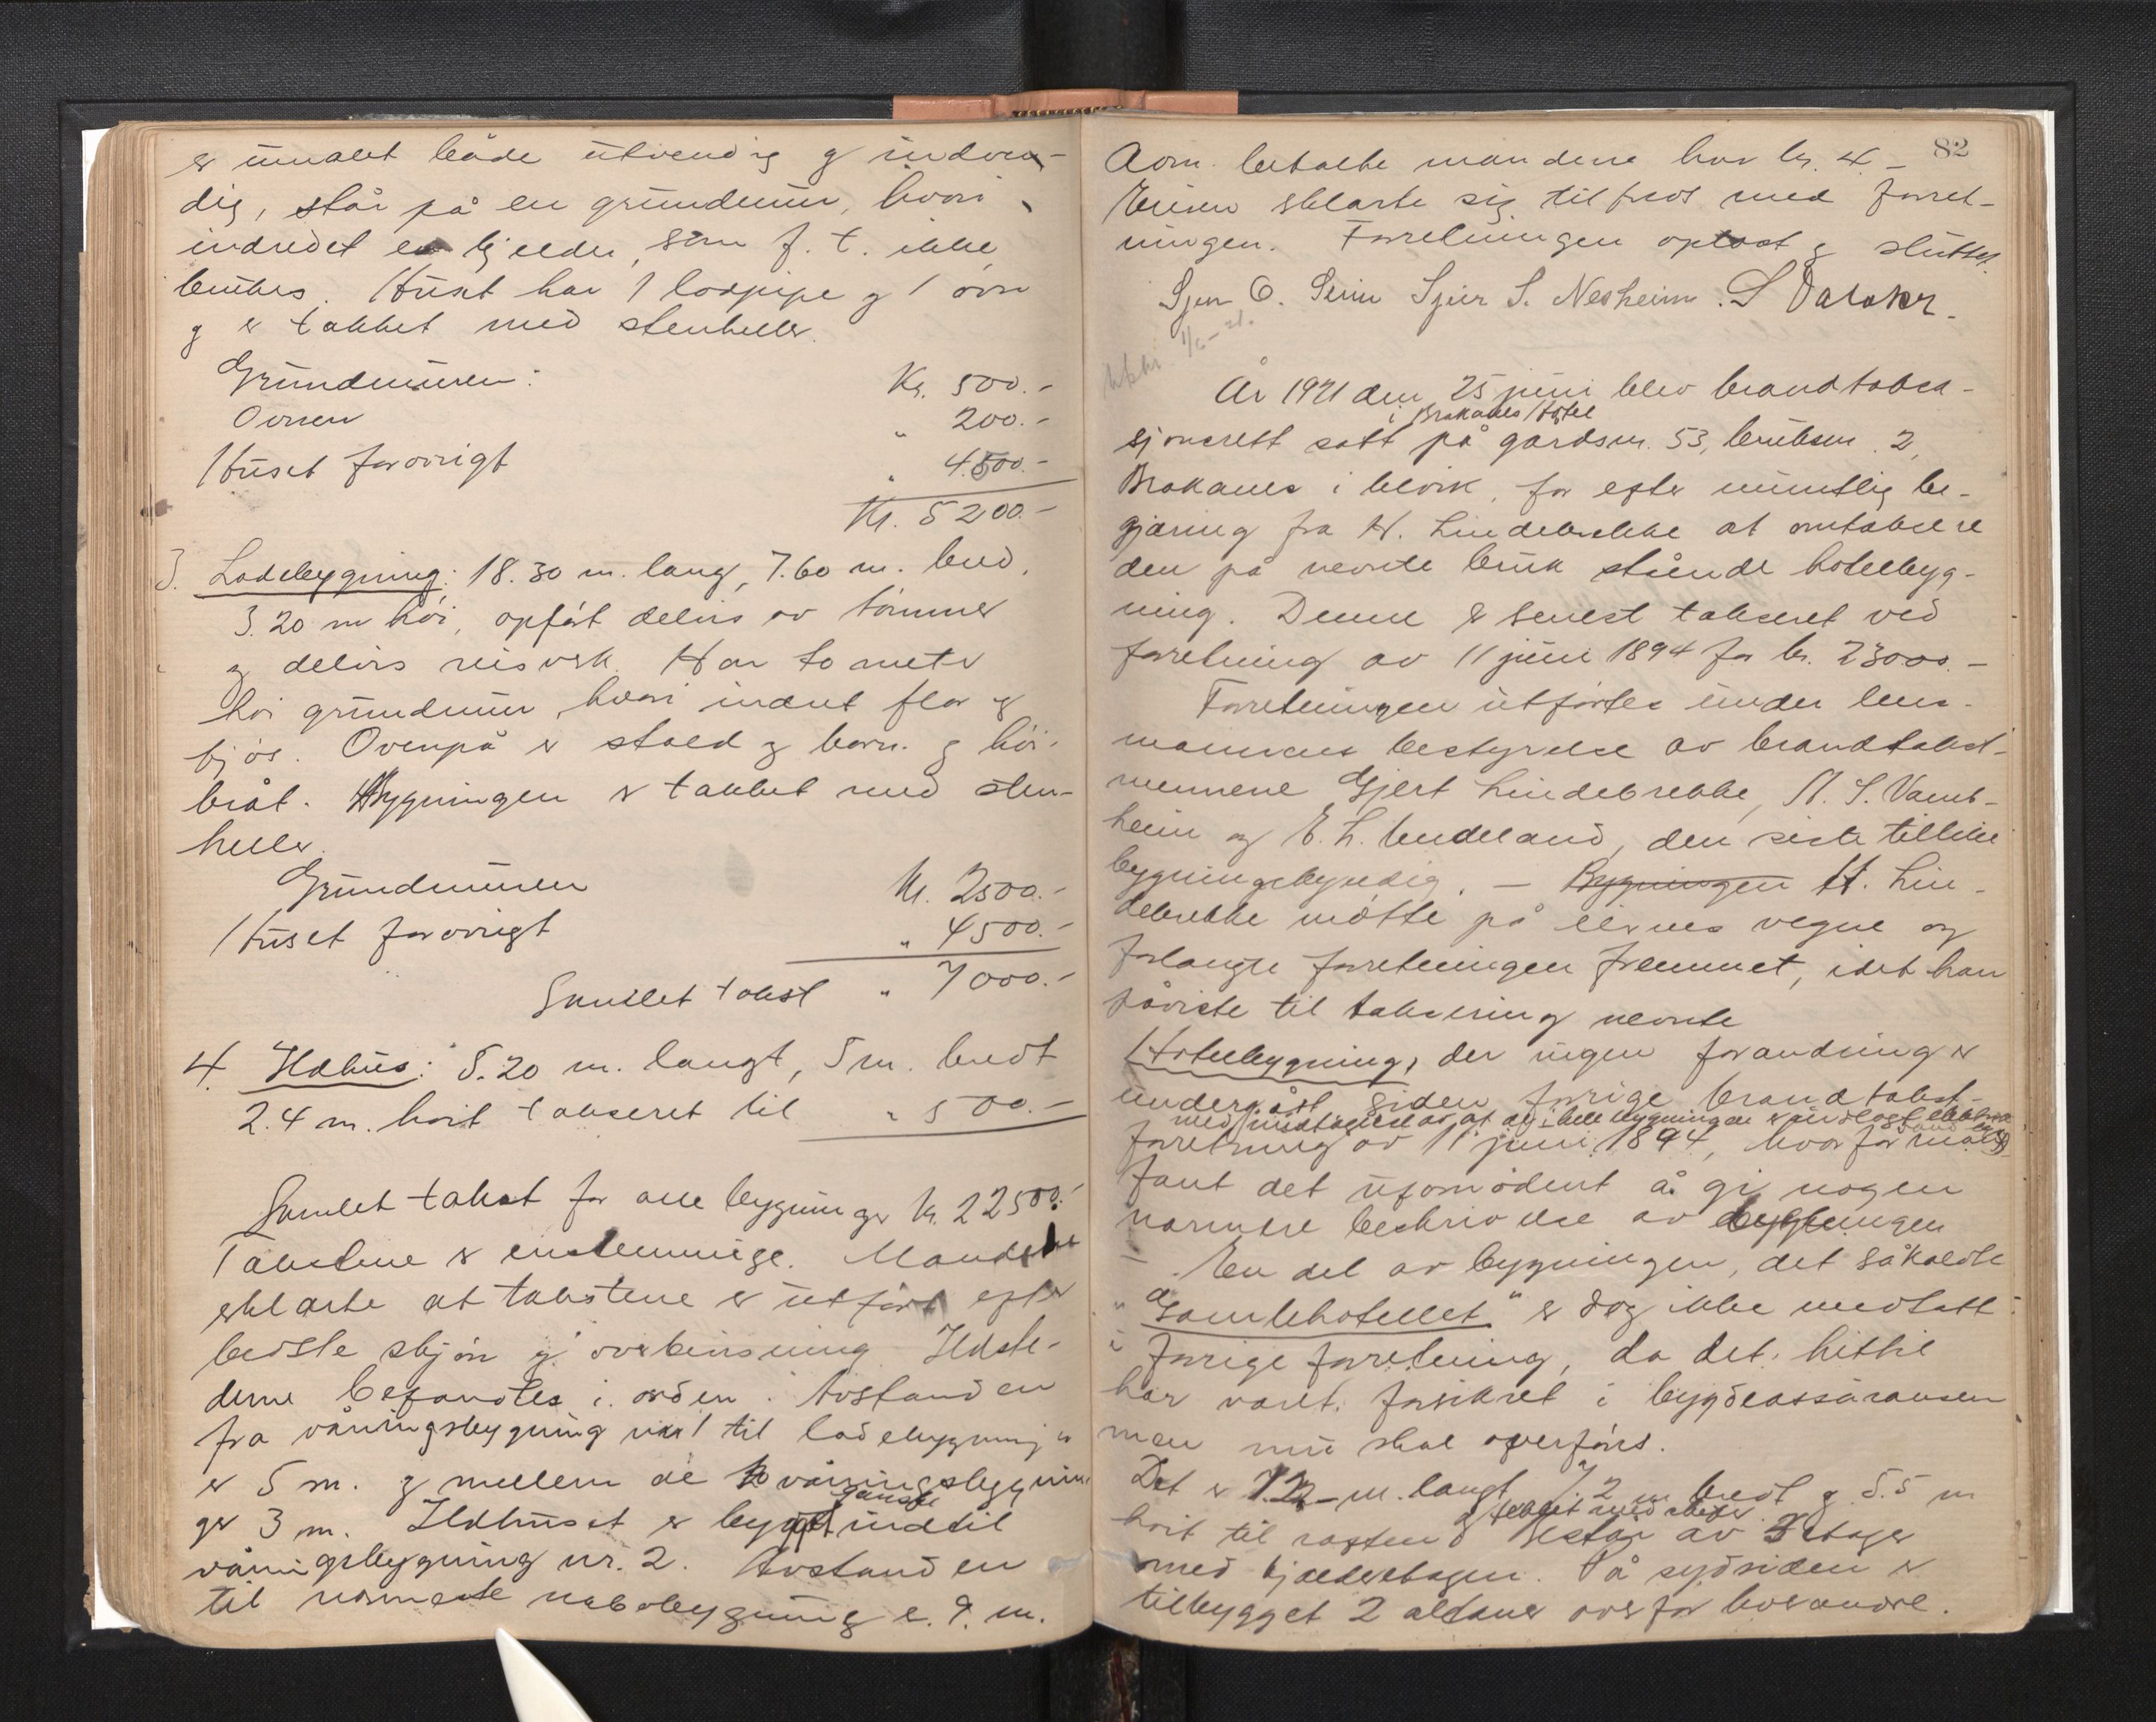 er umalet både utvendig og indven-
dig, står på en grundmur, hvori
indredet en kjelder, som f. t. ikke
brukes. Huset har 1 lodpipe og 1 ovn
og er tækket med stenheller.
Grundmuren: Kr. 500.-
Ovnen " 200.-
Huset forøvrigt " 4.500.-
Kr. 5200.-
3. Ladebygning: 18.30 m. lang, 7.60 m. bred,
3.20 m høi, opført delvis av tømmer
og delvis reisverk. Har to meter
høi grundmur, hvori indret flor og
fjøs. Ovenpå er stald og barn. og høi-
bråt. Bygningen er tækket med sten-
heller.
Grundmuren Kr. 2500.-
Huset forøvrigt " 4500.-
Samlet takst " 7000.-
4. Ildhus: 5.20 m. langt, 5 m. bredt
2.4 m. høit takseret til " 500.-
Samlet takst for alle bygninger kr. 22500.-
Takstene er enstemmige. Mændene
erklærte at takstene er utført efter
bedste skjøn og overbevisning. Ildste-
derne befandtes i orden. Avstanden
fra våningsbygning nr. 1 til ladebygningen
er 5 m. og mellem de to våningsbygnin-
ger 3 m. Ildhuset er bygget ganske indtil
våningsbygning nr. 2. Avstanden
til nærmeste nabobygning er 9. m.
82
Aom. betalte mændene hver kr. 4.-
Eieren erklærte sig tilfreds med forret-
ningen. Forretningen oplæst og sluttet.
Sjur O. Seim Sjur S. Nesheim. S
1/6-21.
År 1921 den 25 juni blev brandtaksa-
i Brakanes Hotel
sjonsrett satt på gardsnr. 53, bruksnr. 2,
Brakanes i Ulvik, for efter muntlig be-
gjæring fra H. Lindebrekke at omtaksere
den på nevnte bruk stående hotelbyg-
ning. Denne er senest takseret ved
forretning av 11 juni 1894 for kr. 23000.-
Forretningen utførtes under lens-
mannens bestyrelse av brandtakst-
mennene Gjert Lindebrekke, N. S. Vamb-
heim og E. L. Undeland, den siste tillike
bygningskyndig. - Bygningen H. Lin-
debrekke møtte på eiernes vegne og
forlangte forretningen fremmet, idet han
påviste til taksering nevnte
Hotelbygning, der ingen forandring er
undergått siden forrige brandtakst-
med undtagelse av at der i hele bygningen er indlagt elektrisk
forretning av 11 juni 1894, hvorfor
fant det ufornødent å gi nogen
nærmere beskrivelse av bygningen
- En del av bygningen, det såkaldte
"Gamlehotellet" er dog ikke medtatt
i forrige forretning, da det hittil
har været forsikret i bygdeassuransen
men nu skal overføres.
Det er 12 m. langt, 7.2 m bredt og 5.5 m
og tækket med skifer
høit til røsten Består av 3 etager
med kjælderetagen. På sydsiden er
tilbygget 2 altaner over for hverandre.